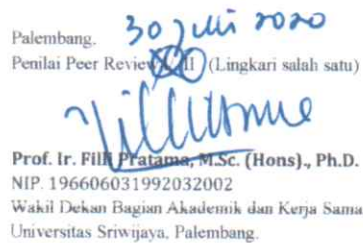 Palembang, 30 Juli 2020
Penilai Peer Review I/II (Lingkari salah satu)
Prof. Ir. Filli Pratama, M.Sc. (Hons)., Ph.D.
NIP. 196606031992032002
Wakil Dekan Bagian Akademik dan Kerja Sama
Universitas Sriwijaya, Palembang.